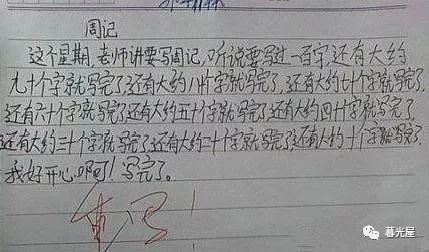 周记
这个星期,老师讲要写周记,听说要写过一百字还有大约
九十个字就写完了还有大约八十个字就写完了,还有大约七十个字就写完了,
还有六十个字就写完了还有大约五十个字就写完了还有大约四十个字就写完了
还有大约三十个字就写完了还有大约二十个字就写完了还有大约十个字就写完了,
我好开心啊可!写完了。
重写!
暮光屋